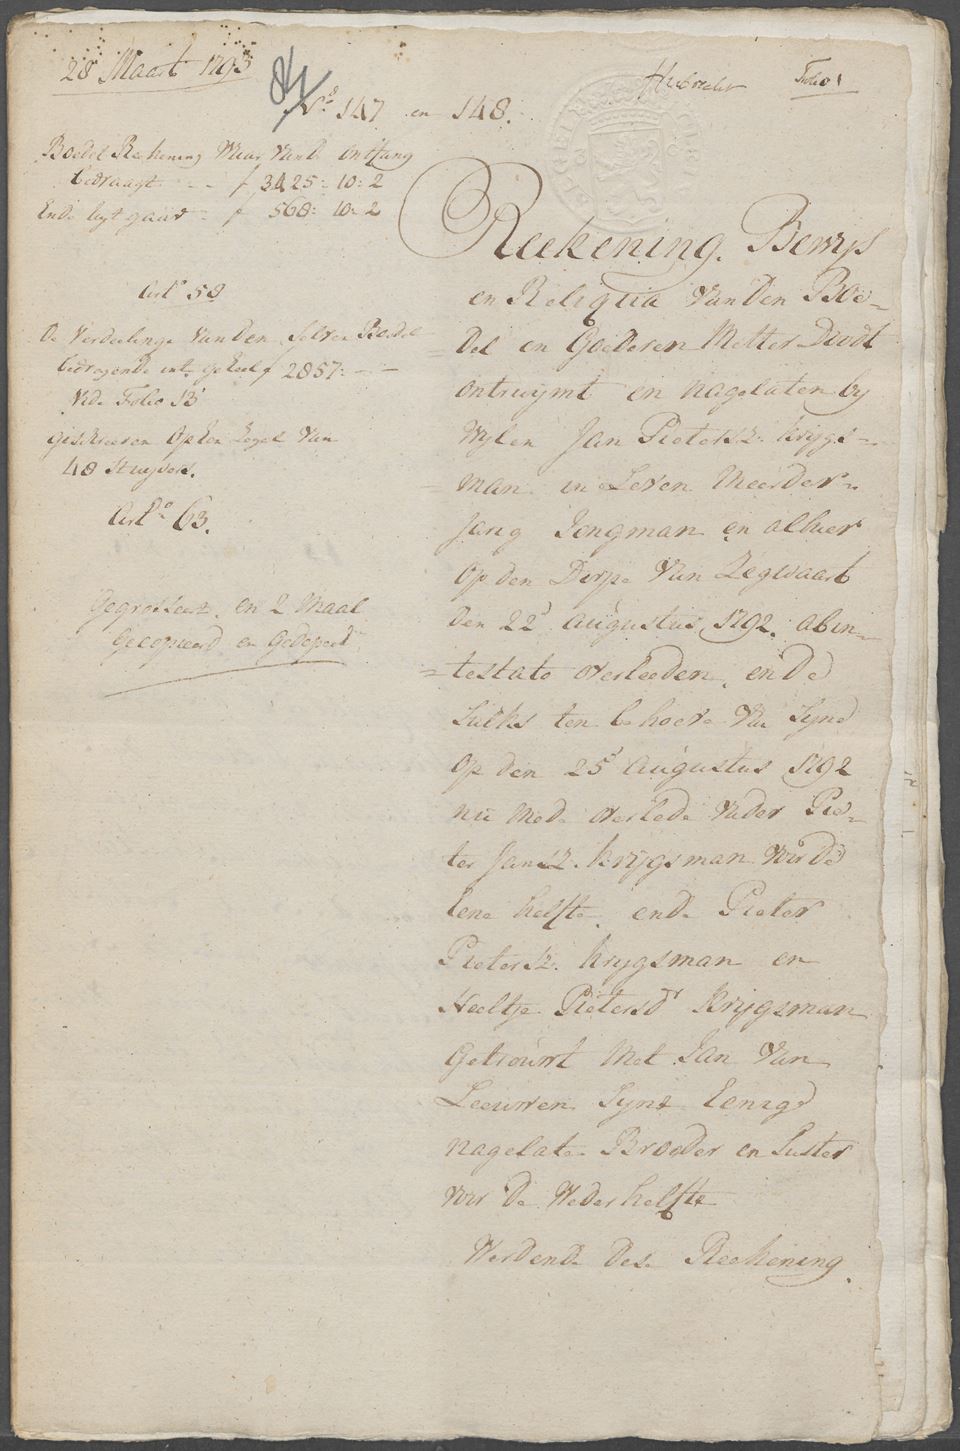 28 Maart 1793
84
No 147 en 148.
Hubrecht
Folio 1
Boedel Rekening Waar Vande Ontfang
bedraagt - - f 3425: 10: 2
Ende legt gaar - f 568: 10: 2
Arto 58
De Verdeelinge Van den Selven Boedel
bedragende int geheel f 2857: - -
Vide Folio 13
geschreeven Op een Zegel Van
48 Stuyvers.
Arto 63.
Gegrosseert en 2 Maal
Gecopieerd en Gedepect
Reekening, Bewys
en Reliqua Van den Boe-
del en Goederen Metter Doodt
ontruymt en nagelaten by
Wylen Jan Pietersz. Krygs-
man in Leven Meerder-
Jarig Jongman en alhier
Op den Dorpe Van Zegwaart
den 22s Augustus 1792. abin-
testato overleeden, ende
Sulks ten behoeve Van Syne
Op den 25s Augustus 1792
nu Mede Overlede Vader Pie-
ter Jansz. Krygsman Voor de
Eene helfte, ende Pieter
Pietersz. Krygsman en
Neeltje Pietersdr Krygsman
Getrouwt Met Jan Van
Leeuwen Syne Eenige
nagelate Broeder en Suster
Voor de Wederhelfte
Werdende dese Reekening